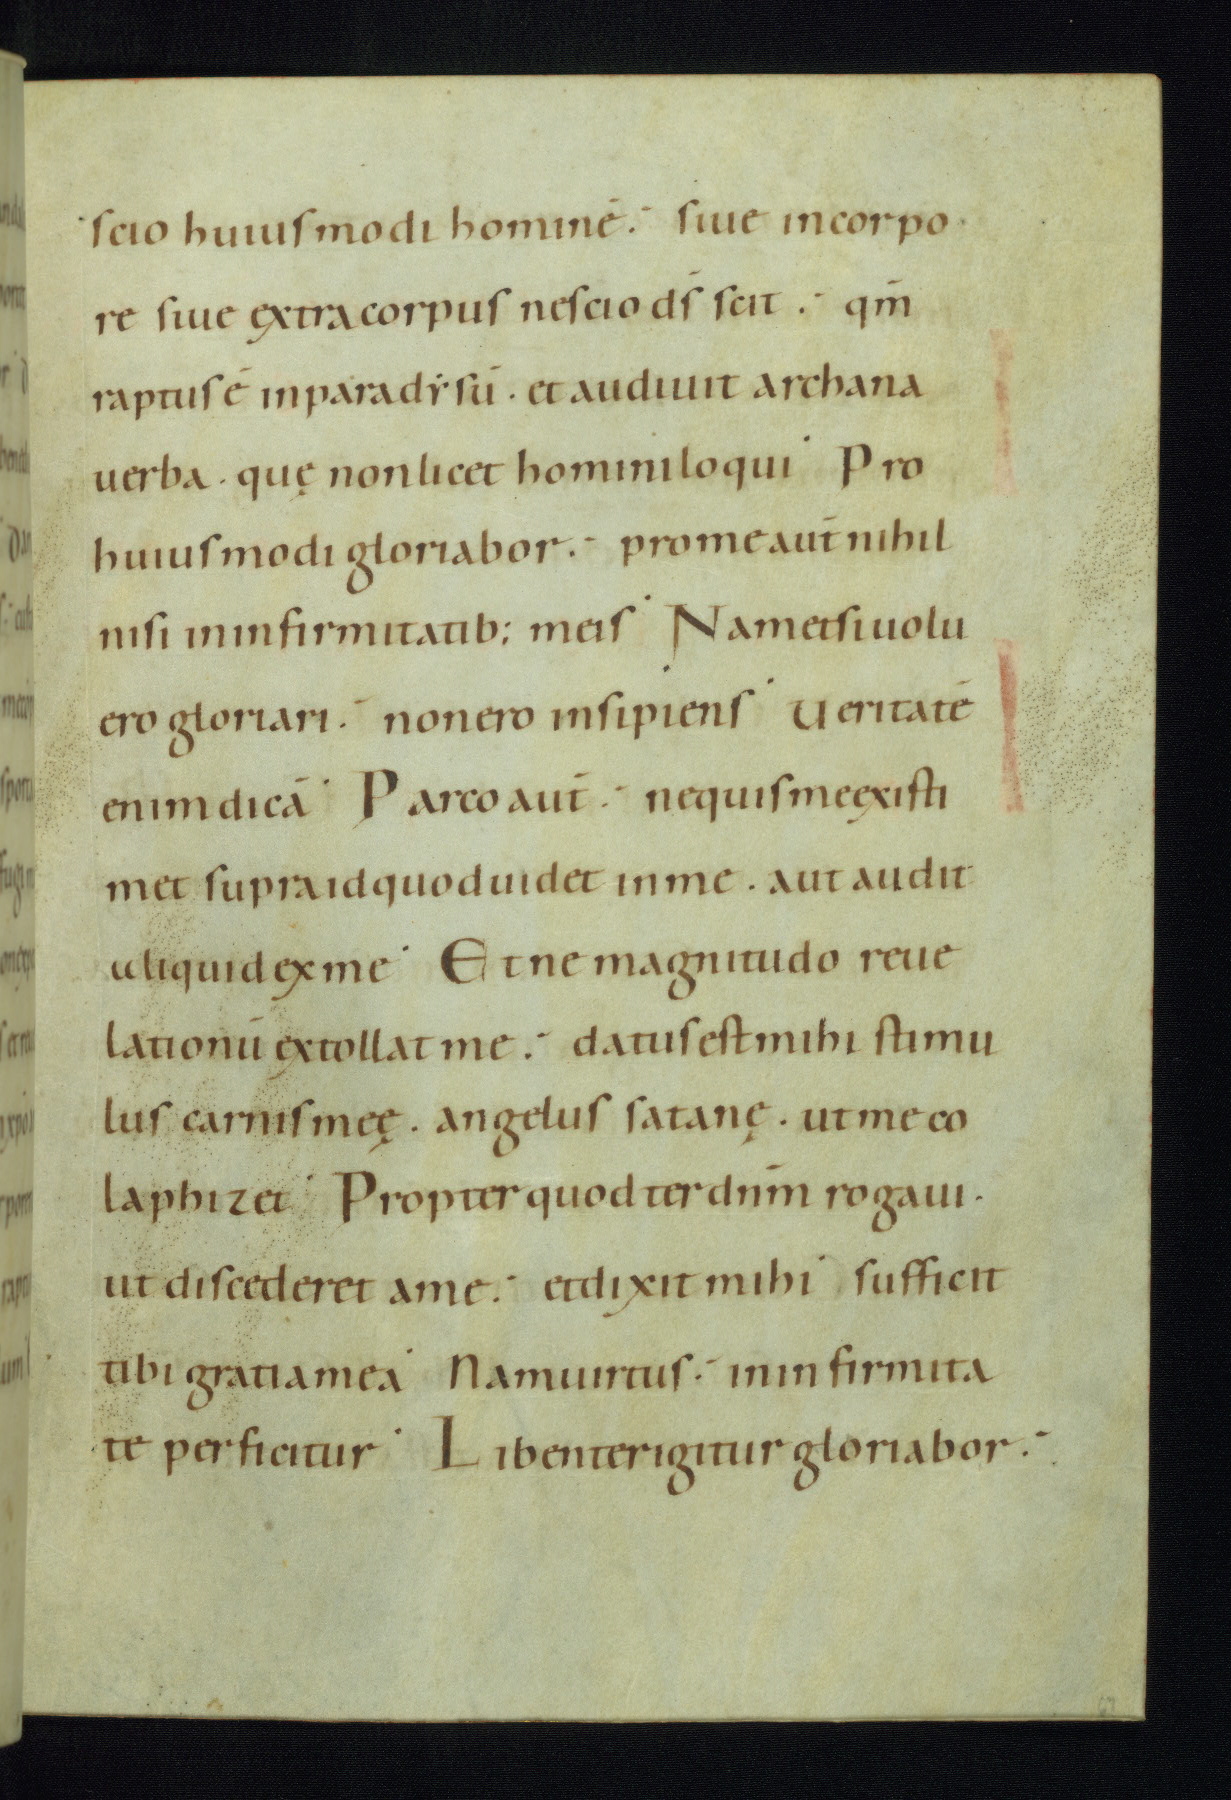 scio huiusmodi hominē. siue incorpo
re siue extra corpus nescio ds̄ scit. qm̄
raptus ē inparadẏsū. et audiuit archana
uerba. quę non licet homini loqui Pro
huiusmodi gloriabor. pro me aut̄ nihil
nisi ininfirmitatib; meis Nam etsi uolu
ero gloriari. non ero insipiens Ueritatē
enim dicā Parco aut̄. ne quis me existi
met supra id quod uidet in me. aut audit
aliquid ex me Et ne magnitudo reue
lationū extollat me. datus est mihi stimu
lus carnis meę. angelus satanę. ut me co
laphizet Propter quod ter dnm̄ rogaui.
ut discederet a me. et dixit mihi sufficit
tibi gratia mea Nam uirtus. in infirmita
te perficitur Libenter igitur gloriabor.